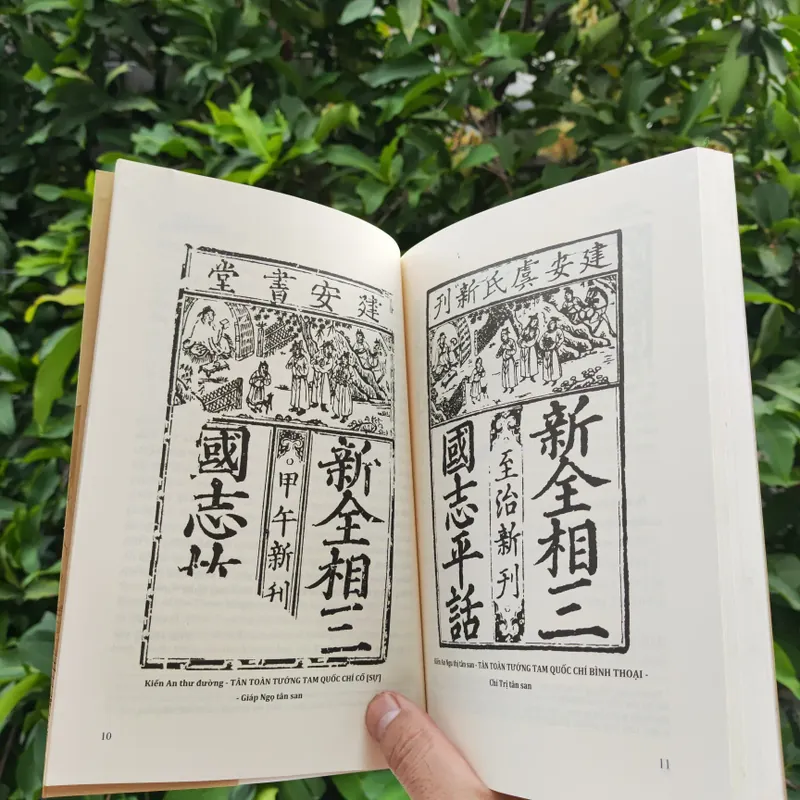 建安書堂
新全相三
甲午新刊
國志
Kiến An thư đường - TÂN TOÀN TƯỚNG TAM QUỐC CHÍ CỐ [SỰ]
- Giáp Ngọ tân san
10
建安虞氏新刊
新全相三
至治新刊
國志平話
Kiến An Ngu thị tân san - TÂN TOÀN TƯỚNG TAM QUỐC CHÍ BÌNH THOẠI -
Chí Trị tân san
11